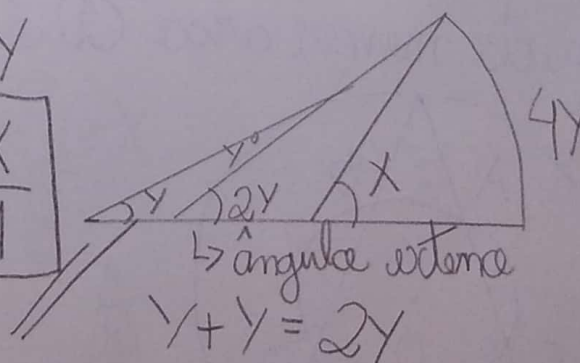 Y
X
Y°
4Y
Y
2Y
X
↳ ângulo externo
Y + Y = 2Y